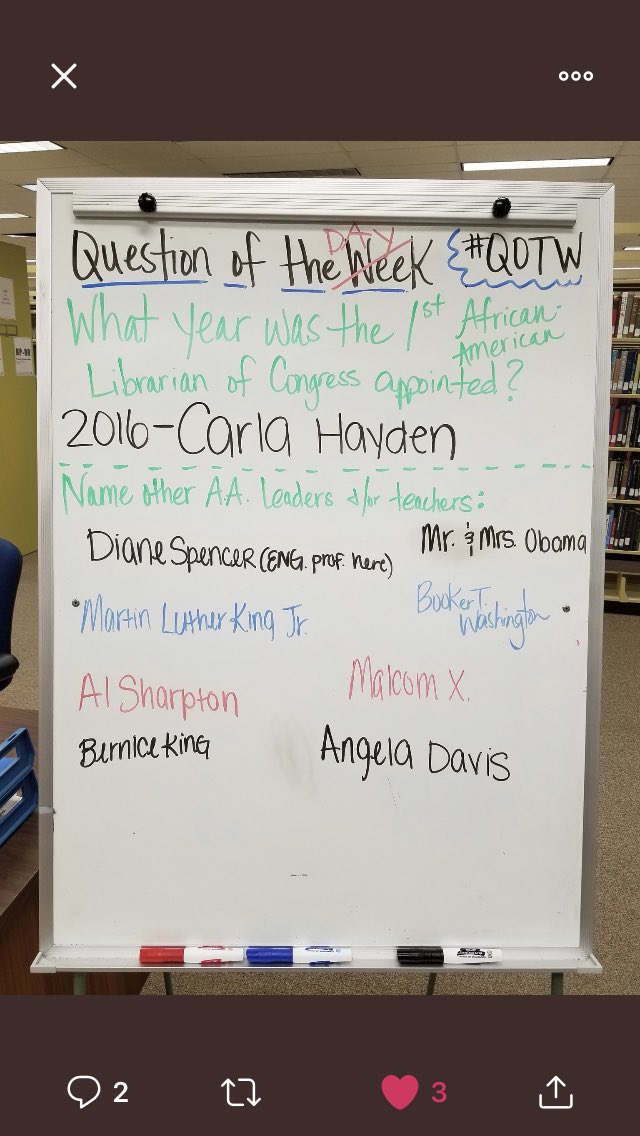 DAY
Question of the Week #QOTW
What year was the 1st African-
American
Librarian of Congress appointed?
2016-Carla Hayden
Name other A.A. leaders &/or teachers:
Diane Spencer (ENG. prof. here) Mr. & Mrs. Obama
Martin Luther King Jr. Booker T.
Washington
Al Sharpton Malcom X.
Bernice King Angela Davis
2 3